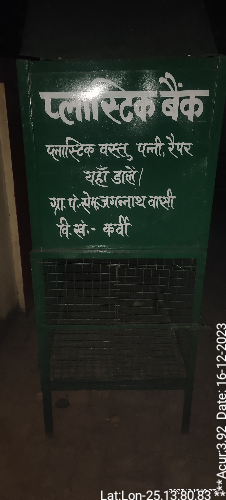 प्लास्टिक बैंक
प्लास्टिक वस्तु, पन्नी, रैपर
यहाँ डालें।
ग्रा.पं. सेमरजगन्नाथ वासी
वि. खं:- कर्वी
Lat:Lon-25.13.80.83
***Acur:3.92 Date: 16-12-2023